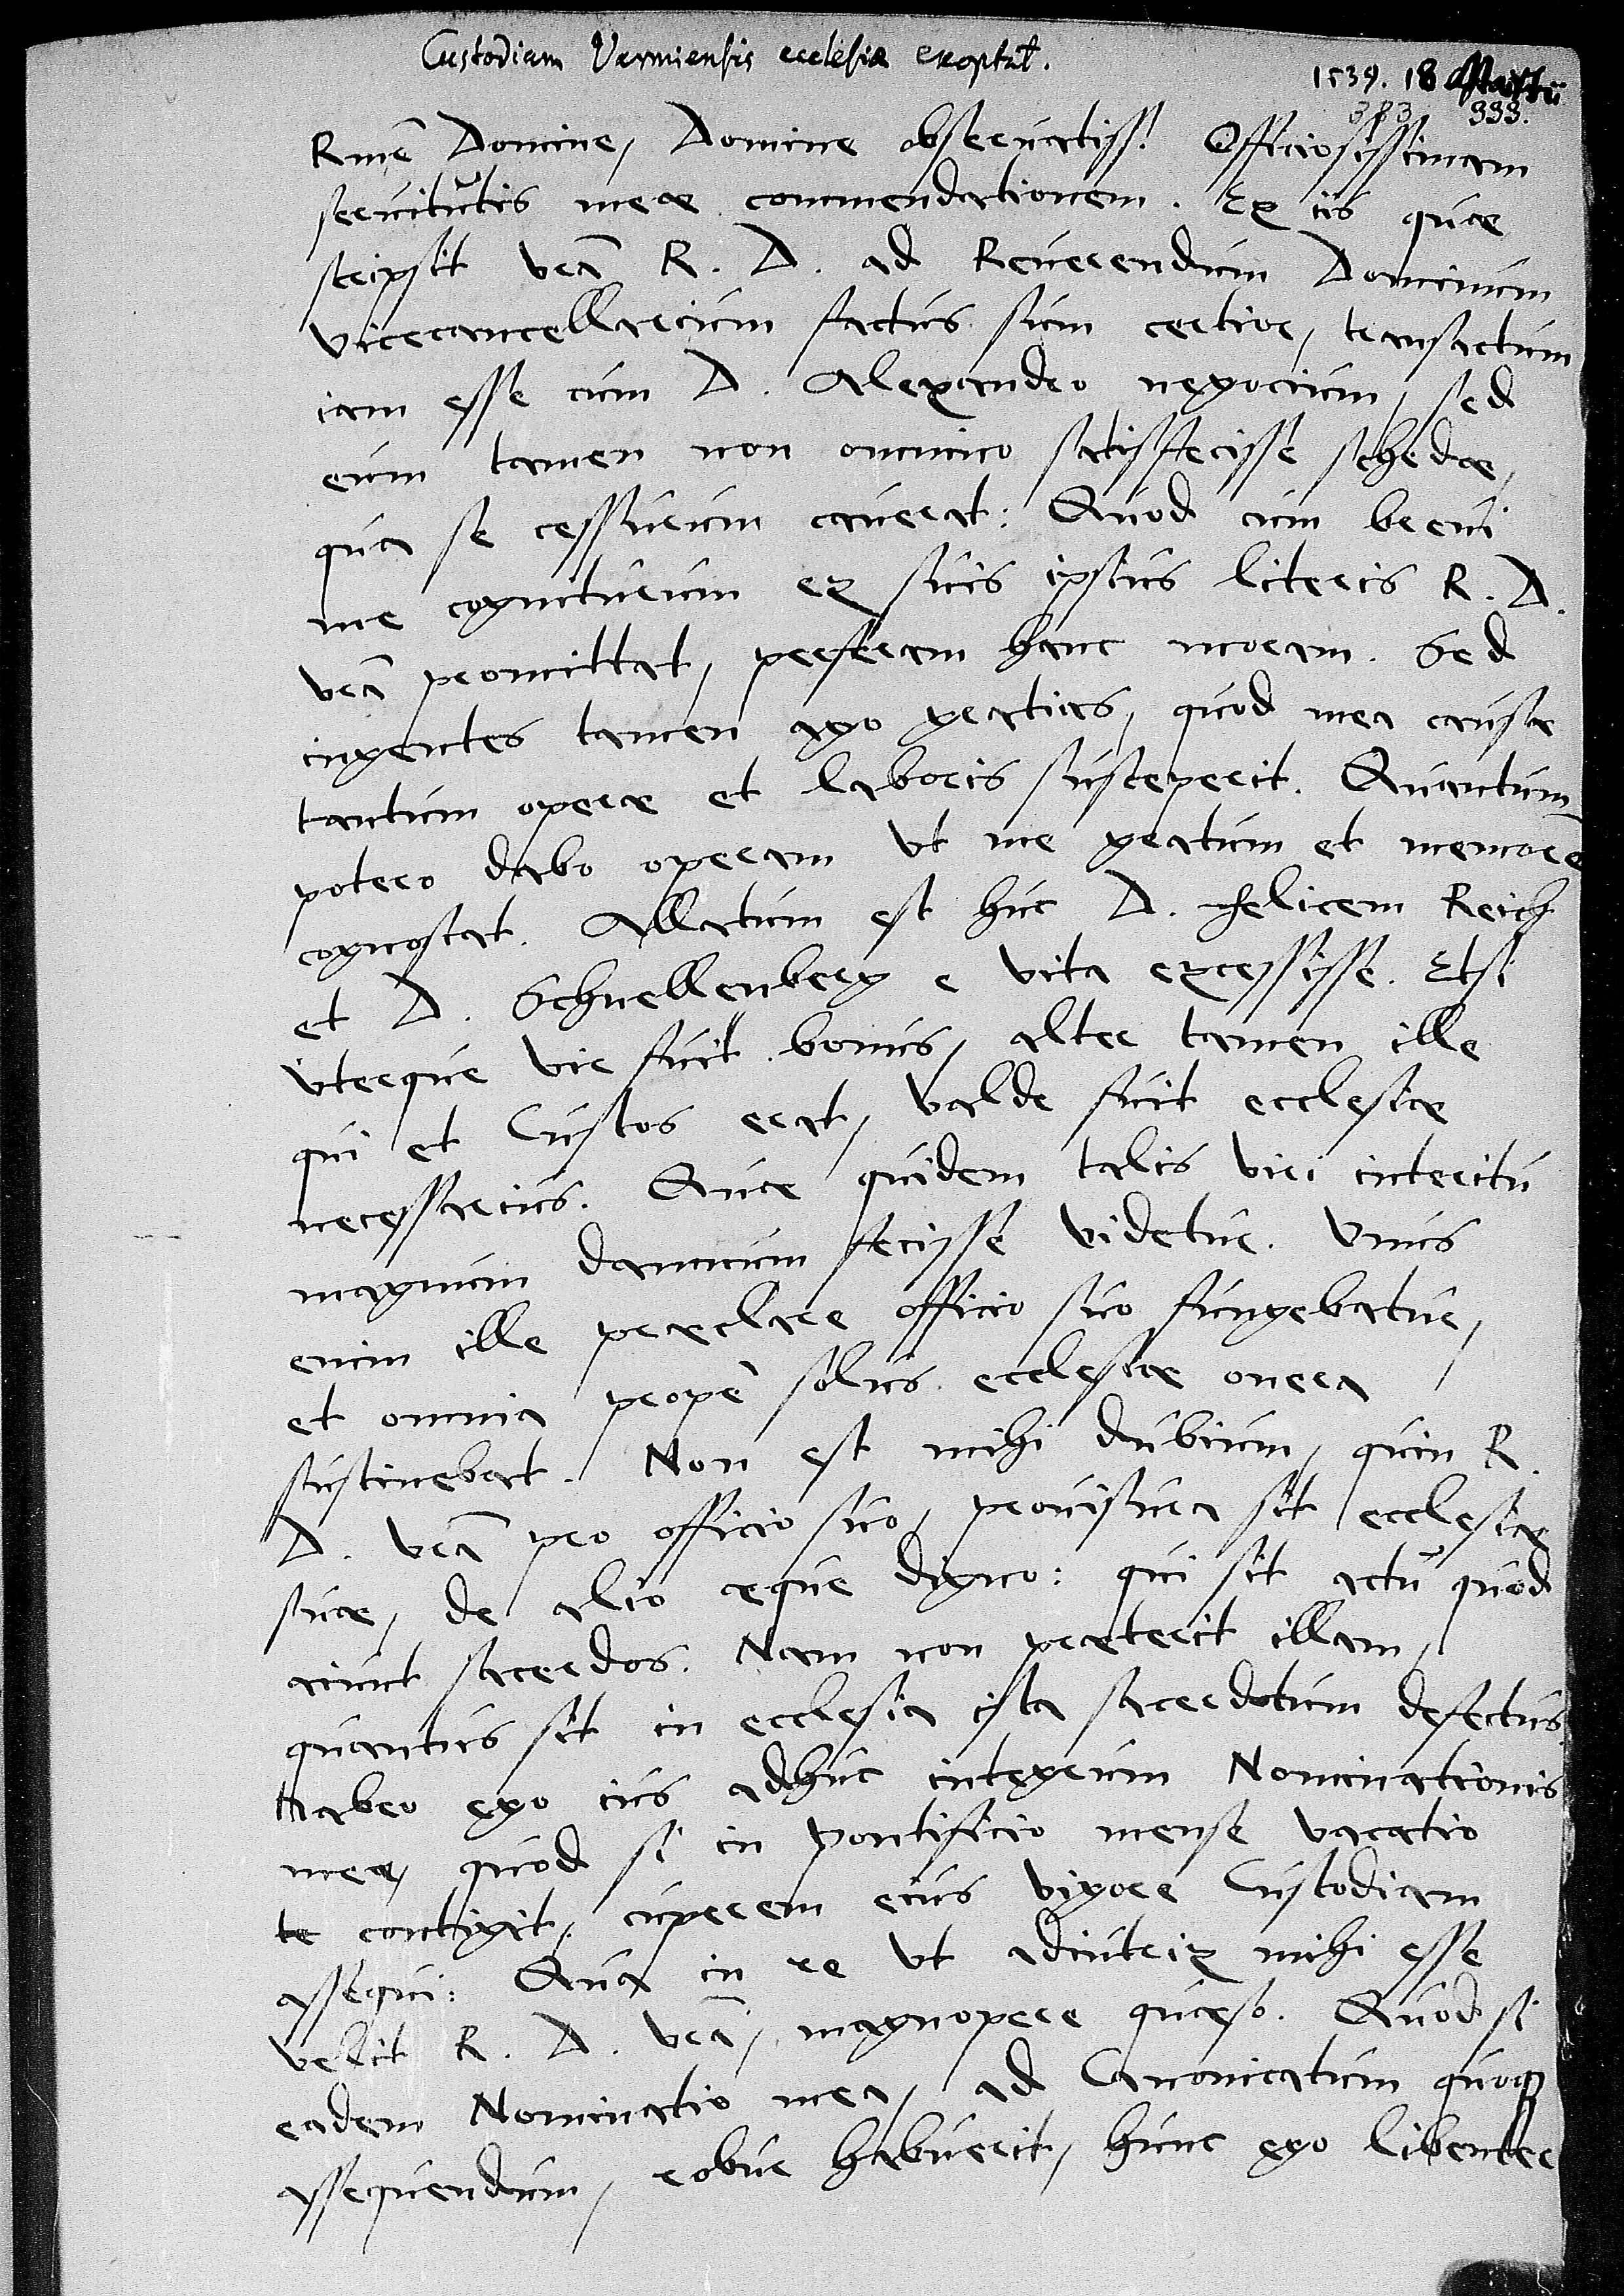 Custodiam Varmiensis ecclesiæ exoptat.
1539. 18 Martii
383 333.
Rme Domine, Domine obseruatiss. Officiosissimam
seruitutis meae commendationem. Ex iis quae
scripsit vra R. D. ad Reuerendum Dominum
vicecancellarium factus sum certior, transactum
iam esse cum D. Alexandro negocium, sed
eum tamen non omnino satisfecisse schedae,
qua se cessurum cauerat: Quod cum breui
me cogniturum ex suis ipsius literis R. D.
vra promittat, perferam hanc moram. Sed
ingentes tamen ago gratias, quod mea causa
tantum operae et laboris susceperit. Quantum
potero dabo operam vt me gratum et memore
cognoscat. Allatum est huc D. Felicem Reich
et D. Schnellenberg e vita excessisse. Etsi
vterque vir fuit bonus, alter tamen ille
qui et Custos erat, valde fuit ecclesiae
necessarius. Quae quidem talis viri interitu
magnum damnum fecisse videtur. Vnus
enim ille praeclare officio suo fungebatur,
et omnia prope solus ecclesiae onera
sustinebat. Non est mihi dubium, quin R.
D. vra pro officio suo, prouisura sit ecclesiae
suae, de alio aeque digno: qui sit actu quod
aiunt sacerdos. Nam non praeterit illam,
quantus sit in ecclesia ista sacerdotum defectus.
Habeo ego ius adhuc integrum Nominationis
meae, quod si in pontificio mense vacatio
te contigit, cuperem eius vigore Custodiam
assequi: Qua in re vt adiutrix mihi esse
velit R. D. vra, magnopere quaeso. Quod si
eadem Nominatio mea, ad Canonicatum quoq
assequendum, robur habuerit, hunc ego libenter